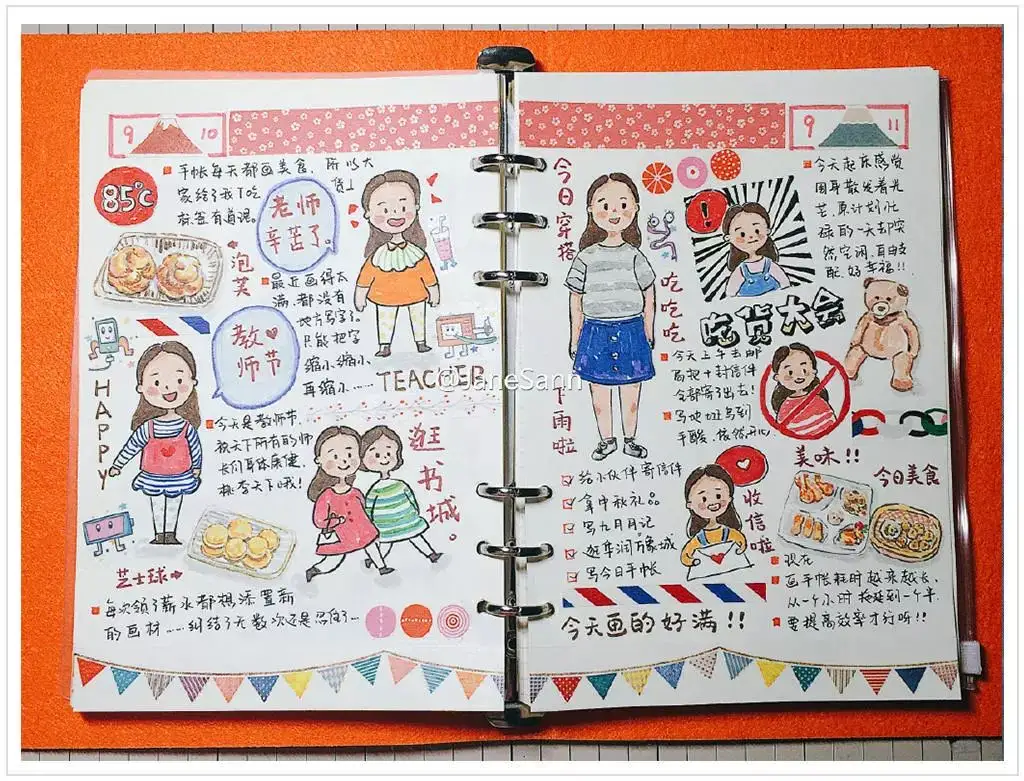 9 10
85℃
手帐每天都画美食，所以大
家给了我下吃
货上
标签有道理。
老师
辛苦了。
泡芙
最近画得太
满，都没有
地方写字了。
只能把字
缩小、缩小、
再缩小……
TEACHER
教
师节
HAPPY
今天是教师节
祝天下所有的师
长们身体康健，
桃李天下哦！
逛书城。
芝士球
每次领了薪水都想添置新
的画材……纠结了无数次还是忍住了…
@JaneSann
9 11
今日穿搭
下雨啦
吃吃吃
吃货大会
今天起床感觉
周身散发着光
芒，原计划忙
碌的一天却突
然空闲，自由支
配，好幸福!!
今天上午去邮
局把十封信件
全部寄了出去！
写地址写到
手酸，依然开心
给小伙伴寄信件
拿中秋礼品
写九月月记
逛华润万象城
写今日手帐
收信啦
美味!!
今日美食
现在
画手帐耗时越来越长，
从一个小时拖延到一个半，
要提高效率才行听!!
今天画的好满!!